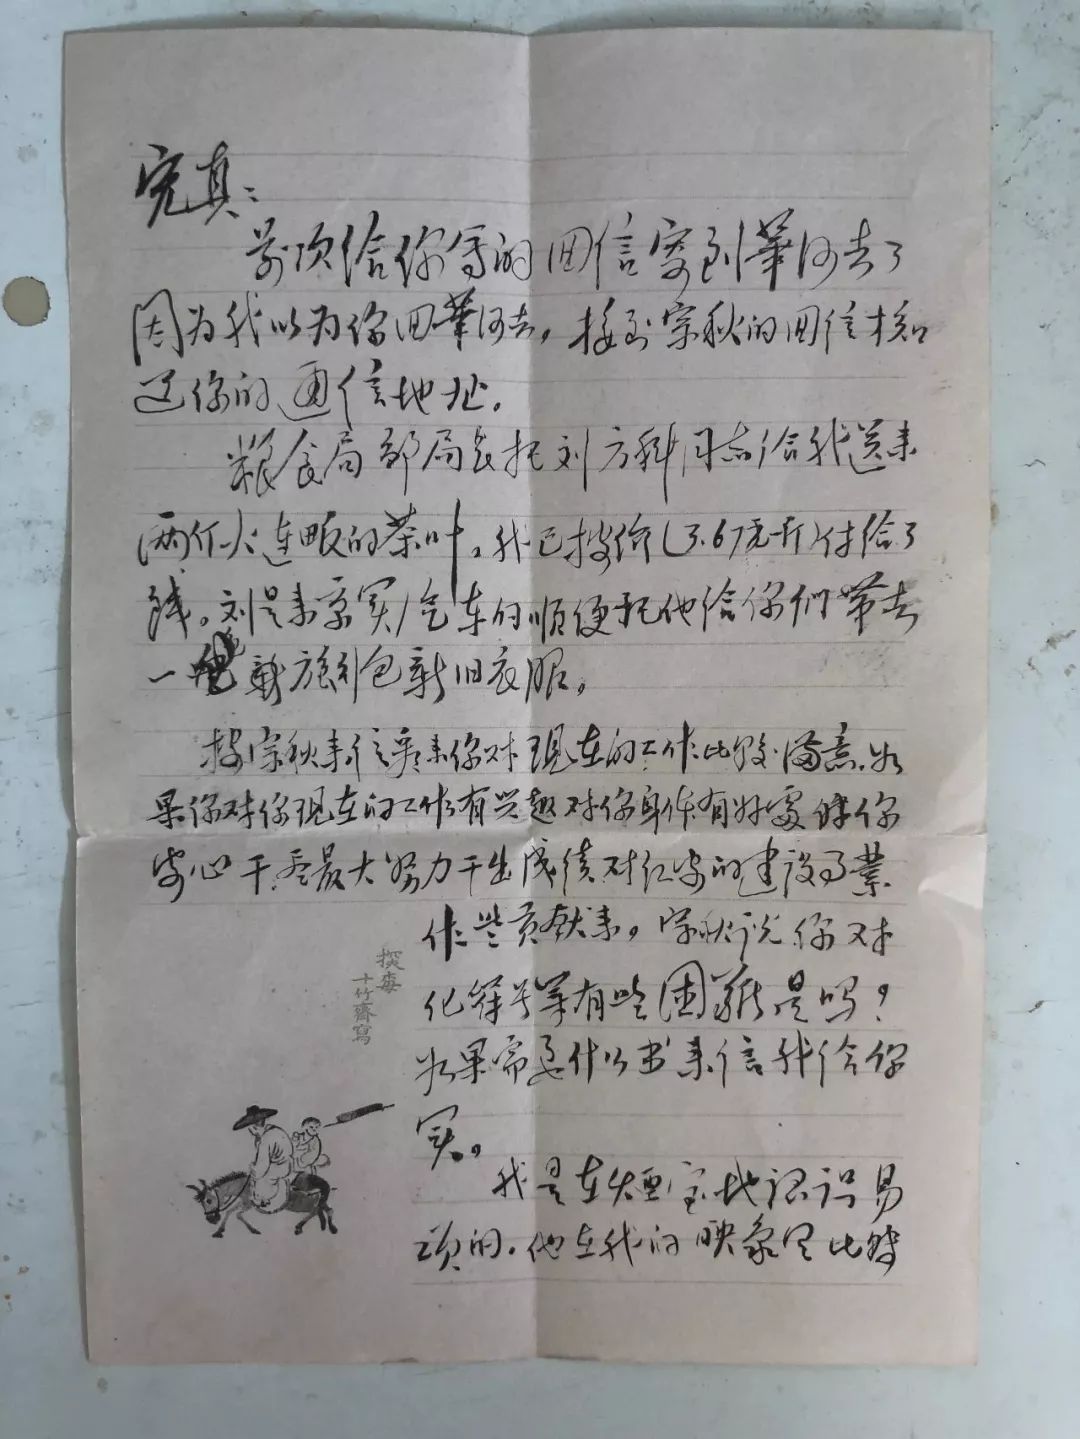 宪真：
前项给你写的回信寄到華河去了
因为我以为你回華河去，接到宗秋的回信才知
道你的通信地址。
粮食局郭局长托刘方科同志给我送来
两斤火连畈的茶叶，我已按价（3.67元一斤）付给了
钱。刘是来京买汽车的顺便托他给你们带去
一 新旅行包新旧衣服。
按宗秋来信看来你对现在的工作比较满意，如
果你对你现在的工作有兴趣对你身体有好處 你
安心干，尽最大努力干出成绩对红安的建设事業
作些贡献来。宗秋说你对
化符号等有些困難是吗？
如果需要什么书来信我给你
买。
我是在 地认识易
的，他在我的映象里比較
探梅
十竹齋寫